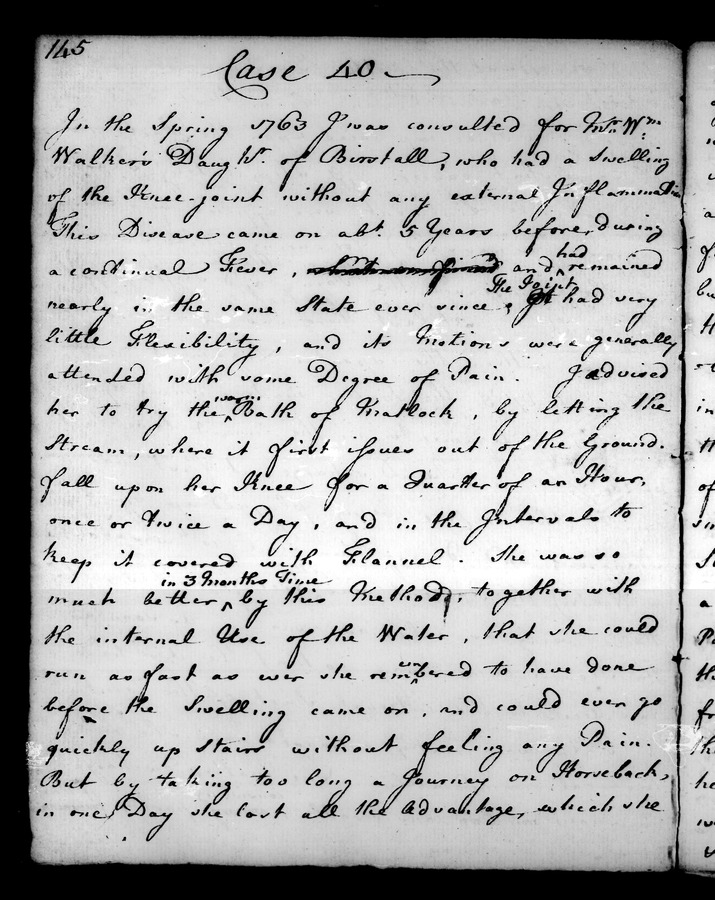 145
Case 40
In the Spring 1763 I was consulted for Mr. Wm
Walker's Daughtr. of Birstall, who had a Swelling
of the Knee-joint without any external Inflammation
This Disease came on abt. 5 Years before, during
a continual Fever, and had remained
nearly in the same State ever since, The Joint had very
little Flexibility, and its Motions were generally
attended with some Degree of Pain. I advised
her to try the warm Bath of Matlock, by letting the
Stream, where it first issues out of the Ground.
fall upon her Knee for a Quarter of an Hour,
once or twice a Day, and in the Intervals to
keep it covered with Flannel. She was so
much better in 3 Months Time by this Method, together with
the internal Use of the Water, that she could
run as fast as ever she remembered to have done
before the Swelling came on, and could even go
quickly up Stairs without feeling any Pain.
But by taking too long a Journey on Horseback,
in one Day she lost all the Advantage, which she